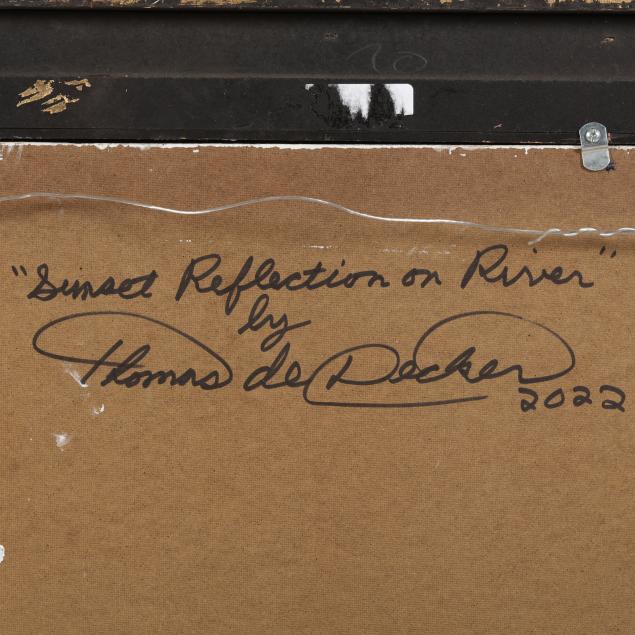 "Sunset Reflection on River"
by
Thomas de Decker
2022